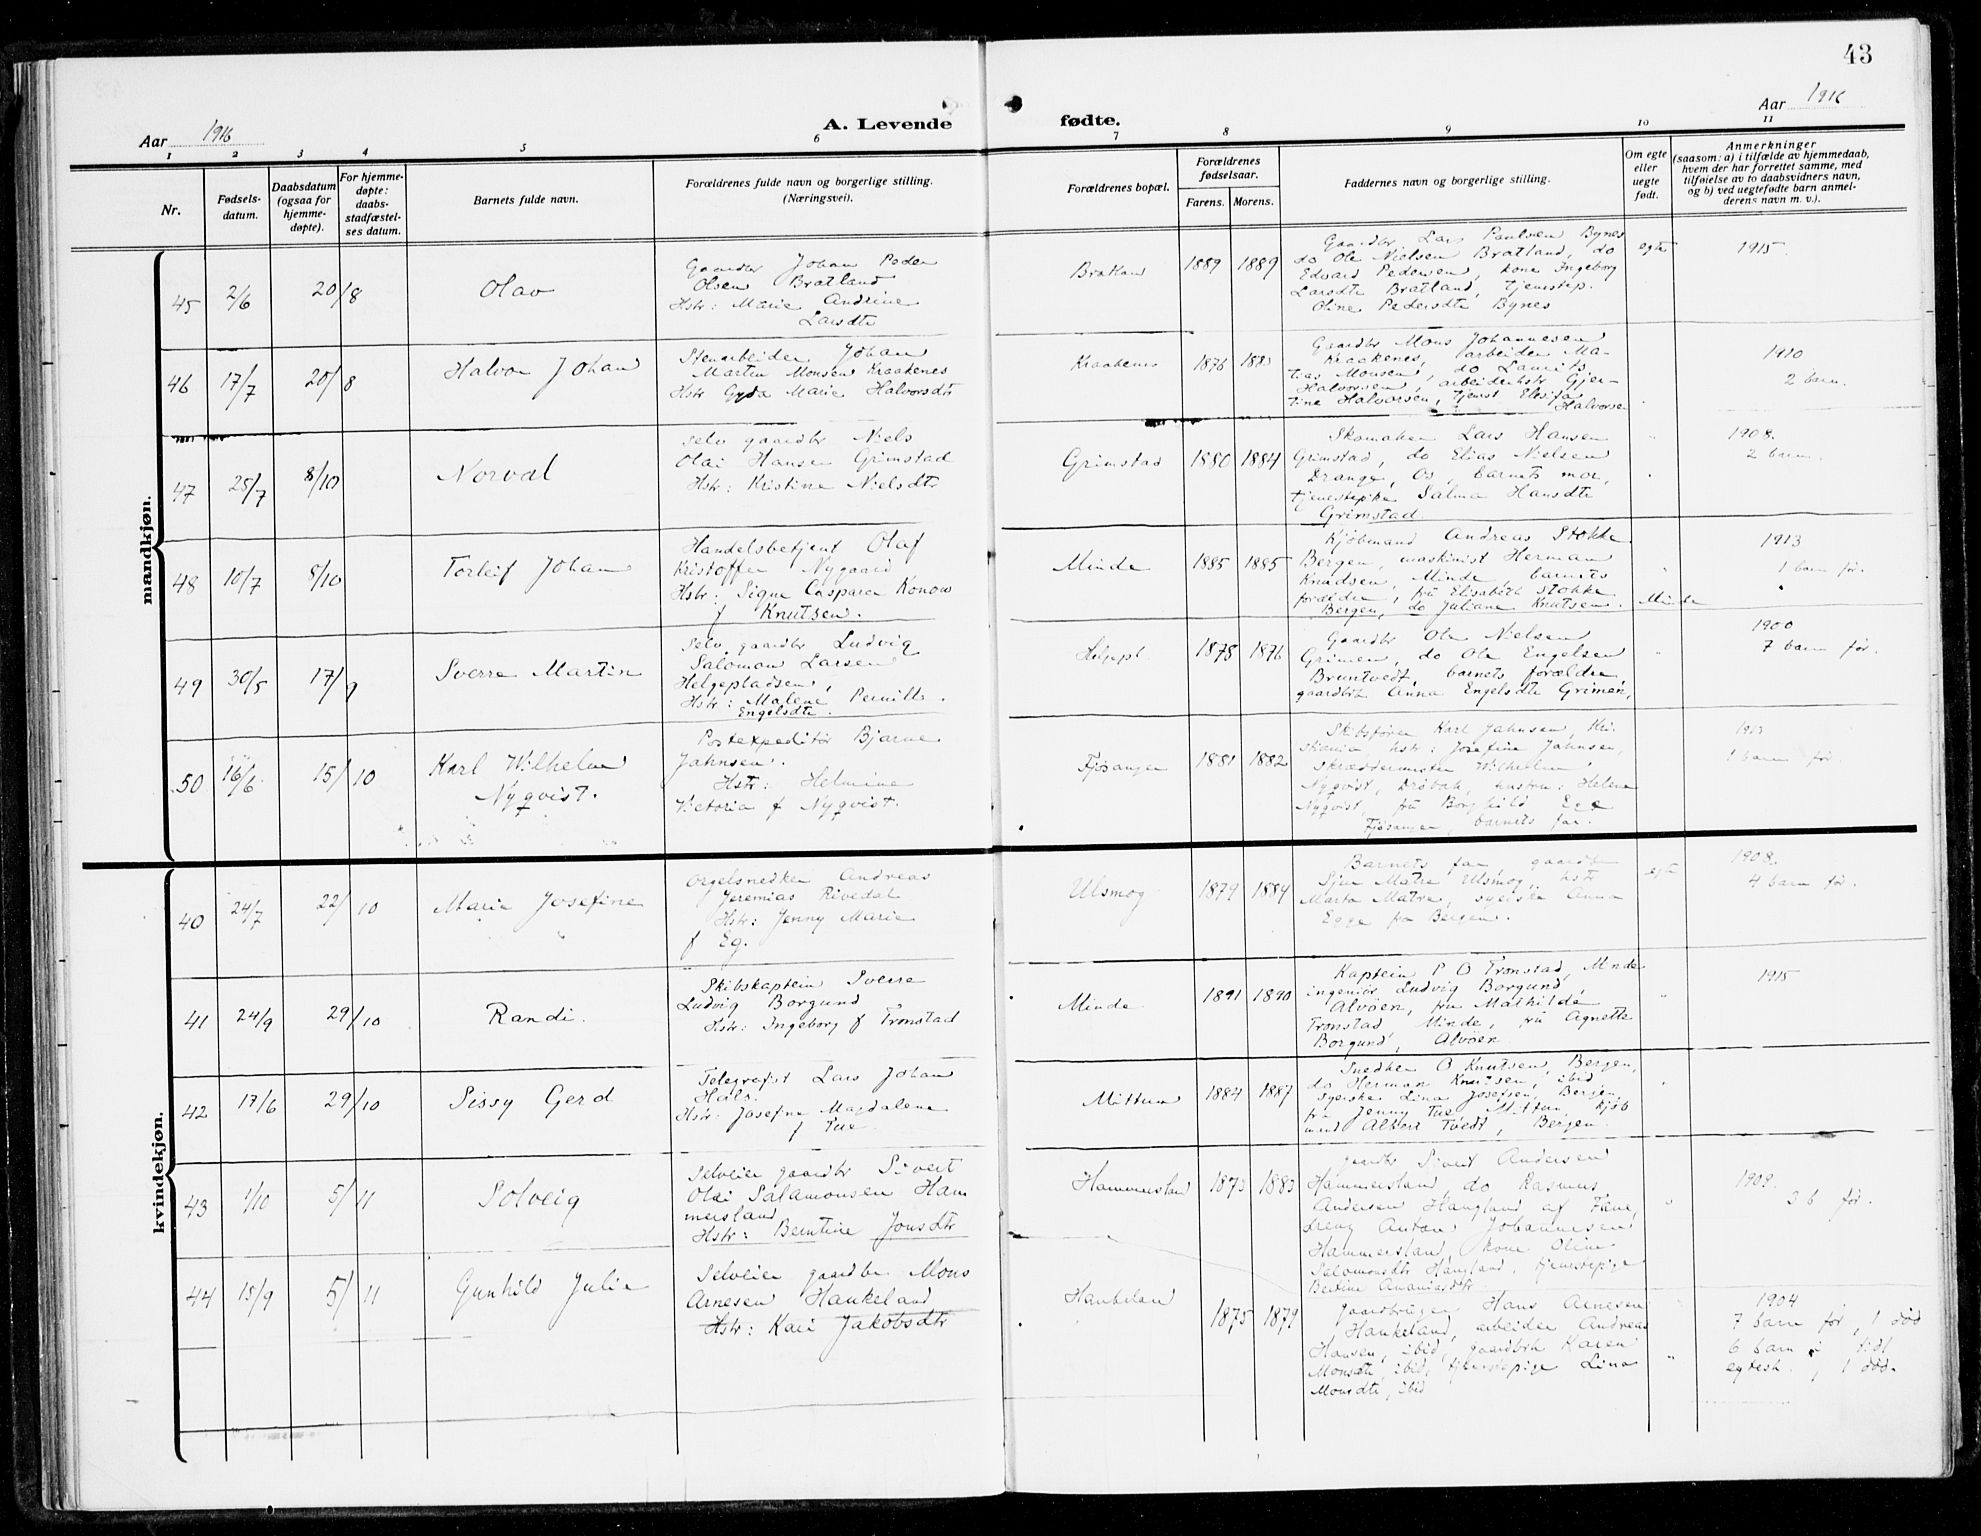 43
Aar 1916
A. Levende fødte.
Aar 1916
1 2 3 4 5 6 7 8 9 10 11
Nr.
Fødsels-
datum.
Daabsdatum
(ogsaa for
hjemme-
døpte).
For hjemme-
døpte:
daabs-
stadfæstel-
ses datum.
Barnets fulde navn.
Forældrenes fulde navn og borgerlige stilling.
(Næringsvei).
Forældrenes bopæl.
Forældrenes
fødselsaar.
Farens. Morens.
Faddernes navn og borgerlige stilling.
Om egte
eller
uegte
født.
Anmerkninger
(saasom: a) i tilfælde av hjemmedaab,
hvem der har forrettet samme, med
tilføielse av to daabsvidners navn,
og b) ved uegtefødte barn anmel-
derens navn m. v.).
mandkjøn.
45 2/6 20/8 Olav
Gaardbr Johan Peder
Olsen Bratland
Hstr: Marie Andrine
Larsdtr
Bratland 1889 1889
Gaardbr Lars Paulsen Bynes
do Ole Nielsen Bratland, do
Edvard Pedersen, kone Ingeborg
Larsdtr Bratland, tjenestep.
Oline Pedersdtr Bynes
egte 1915.
46 17/7 20/8 Halvor Johan
Stenarbeider Johan
Martin Monsen Kraakenes
Hstr Gyda Marie Halvorsdtr
Kraakenes 1876 1883
Gaardbr Mons Johannesen
Kraakenes, arbeider Ma-
tias Monsen, do Laurits
Halvorsen, arbeiderhstr Gjer-
tine Halvorsen, tjenest Elesifa
Halvorsen
1910
2 barn.
47 25/7 8/10 Norval
Selv gaardbr Niels
Olai Hansen Grimstad
Hstr: Kristine Nielsdtr
Grimstad 1880 1884
Skomaker Lars Hansen
Grimstad, do Elias Nielsen
Drange, Os, barnets mor,
tjenestepike Salma Hansdtr
Grimstad.
" 1908.
2 barn.
48 10/7 8/10 Torleif Johan
Handelsbetjent Olaf
Kristoffer Nygaard
Hstr: Signe Caspara Konow
f Knutsen.
Minde 1885 1885
Kjøbmand Andreas Stokke
Bergen, maskinist Herman
Knudsen, Minde, barnets
forældre, fru Elisabeth Stokke
Bergen, do Juliane Knutsen. Minde
" 1913
1 barn før.
49 30/5 17/9 Sverre Martin
Selv. gaardbr Ludvig
Salomon Larsen
Helgepladsen,
Hstr: Malene Pernille
Engelsdtr.
Helgepl 1878 1876
Gaardbr Ole Nielsen
Grimen, do Ole Engelsen
Bruntvedt, barnets forældre,
gaardbr Anna Engelsdtr Grimen,
" 1900
7 barn før.
50 16/6 15/10 Karl Wilhelm
Nyqvist.
Postexpeditør Bjarne
Jahnsen.
Hstr: Helmine
Victoria f Nyqvist.
Fjøsanger 1881 1882
Skibsfører Karl Jahnsen, Kri-
stiania, hstr: Josefine Jahnsen,
skræddermester Wilhelm
Nyqvist, Drøbak, hustru: Helene
Nyqvist, fru Borghild Ege
Fjøsanger, barnets far.
1913
1 barn før.
kvindekjøn.
40 24/7 22/10 Marie Josefine
Orgelsnedker Andreas
Jeremias Rivedal
Hstr: Jenny Marie
f Eg.
Ulsmog 1879 1884
Barnets far, gaardbr
Sjur Matre Ulsmog, hstr
Marta Matre, syerske Anna
Egge fra Bergen.
egte 1908.
4 barn før.
41 24/9 29/10 Randi.
Skibskaptein Sverre
Ludvig Borgund
Hstr: Ingeborg f Tronstad
Minde 1891 1890
Kaptein P O Tronstad, Minde
ingeniør Ludvig Borgund
Alvøen, fru Mathilde
Tronstad, Minde, fru Agnette
Borgund, Alvøen
" 1915
42 17/6 29/10 Sissy Gerd
Telegrafist Lars Johan
Hals.
Hstr: Josefine Magdalene
f Tue.
Mittun 1884 1887
Snedker O Knutsen, Bergen,
do Herman Knutsen, ibid,
syerske Lina Josefsen, Bergen,
fru Jenny Tue, Mittun, kjøb
mand Albert Tvedt, Bergen.
43 1/10 5/11 Solveig
Selveier gaardbr Sivert
Olai Salamonsen Ham
mersland
Hstr: Berntine Jonsdtr
Hammersland 1873 1883
gaardbr Sivert Andersen
Hammersland, do Rasmus
Andersen Haugland af Fane,
dreng Anton Johannesen
Hammersland, kone Oline
Salomonsdtr Haugland, tjenestepige
Bertine Ananiasdtr.
" 1909.
3 b før.
44 15/9 5/11 Gunhild Julie
Selveier gaardbr Mons
Arnesen Haukeland
Hstr: Kari Jakobsdtr
Haukeland 1875 1879
gaardbruger Hans Arnesen
Haukeland, arbeider Andreas
Hansen, ibid, gaardbrk Karen
Monsdtr, ibid, tjenestepige Lina
Monsdtr, ibid
" 1904
7 barn før, 1 død
6 barn i sidst
egtesk., 1 død.